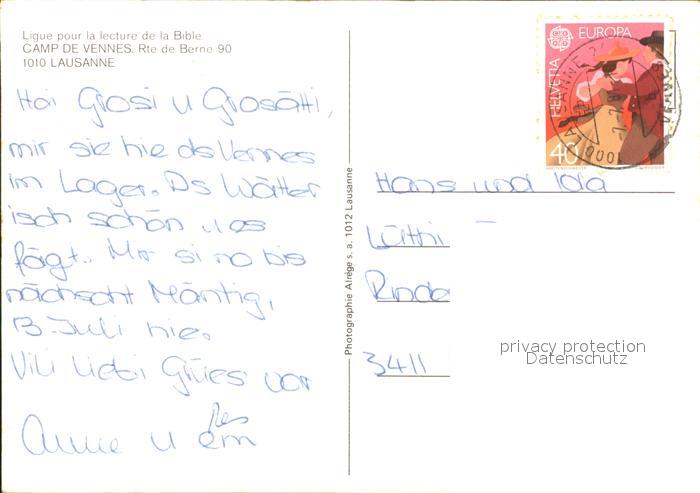 Ligue pour la lecture de la Bible
CAMP DE VENNES. Rte de Berne 90
1010 LAUSANNE
Hoi Grosi u Grosätti,
mir sie hie ds Vennes
im Lager. Ds Wätter
isch schön u es
fägt. Mir si no bis
nächscht Mäntig,
13. Juli hie.
Vili liebi Grües vor
Anne u em
Res
Photographie Alrège s. a. 1012 Lausanne
HELVETIA
EUROPA
40
LAUSANNE
1000
Hans und Ida
Lüthi
Rinda
3411
privacy protection
Datenschutz